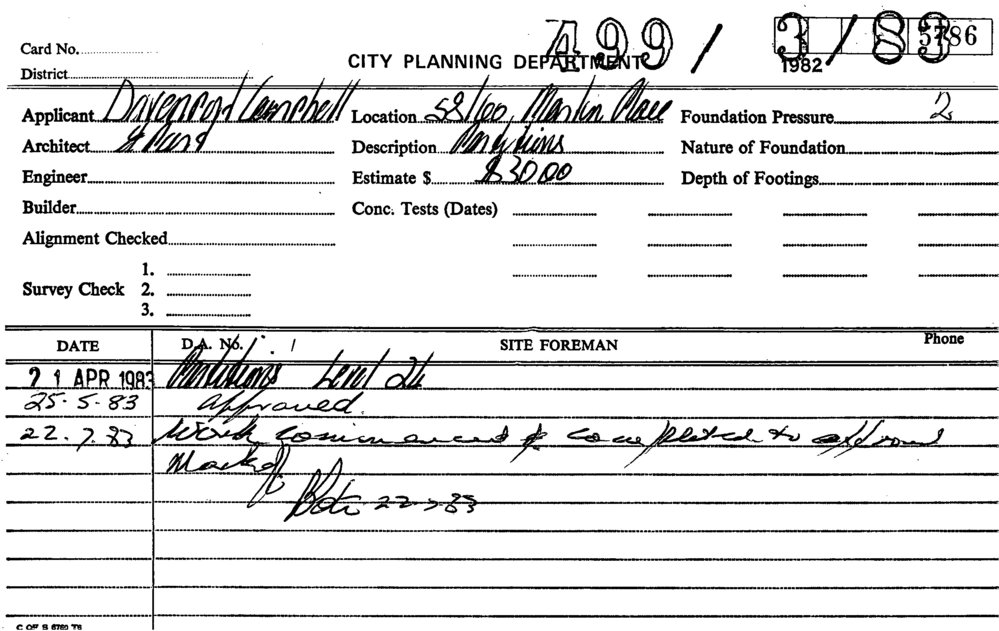 499/3/83
5786
1982
Card No.
CITY PLANNING DEPARTMENT
District
Applicant Davenport Campbell Location 58/60, Martin Place Foundation Pressure 2
Architect & Part Description Partitions Nature of Foundation
Engineer Estimate $ $3000 Depth of Footings
Builder Conc. Tests (Dates)
Alignment Checked
1.
Survey Check 2.
3.
DATE D.A. No. SITE FOREMAN Phone
21 APR 1983 Partitions Level 24
25.5.83 approved.
22.7.83 Work commenced & completed to
22-7-83
C OF S 6760 TS